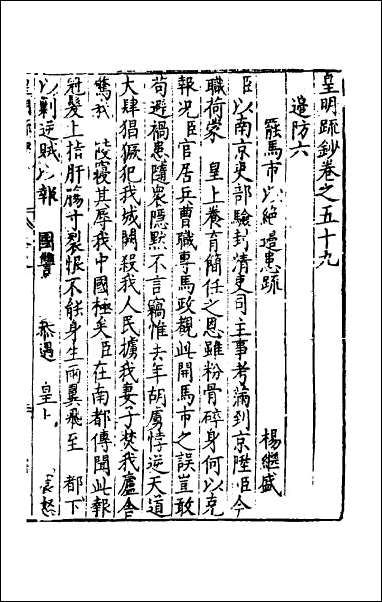 皇明疏鈔卷之五十九
邊防六
罷馬市以絕邊患疏 楊繼盛
臣以南京吏部驗封清吏司主事考滿到京陞臣今
職荷蒙 皇上養育簡任之恩雖粉骨碎身何以克
報况臣官居兵曹職專馬政觀此開馬市之誤豈敢
苟避禍患隨衆隱默不言竊惟去年胡虜悖逆天道
大肆猖獗犯我城闕殺我人民擄我妻子焚我廬舍
驚我 陵寢其辱我中國極矣臣在南都傳聞此報
冠髮上指肝腸寸裂恨不能身生兩翼飛至 都下
以剿逆賊以報 國讐 恭遇 皇上 怒